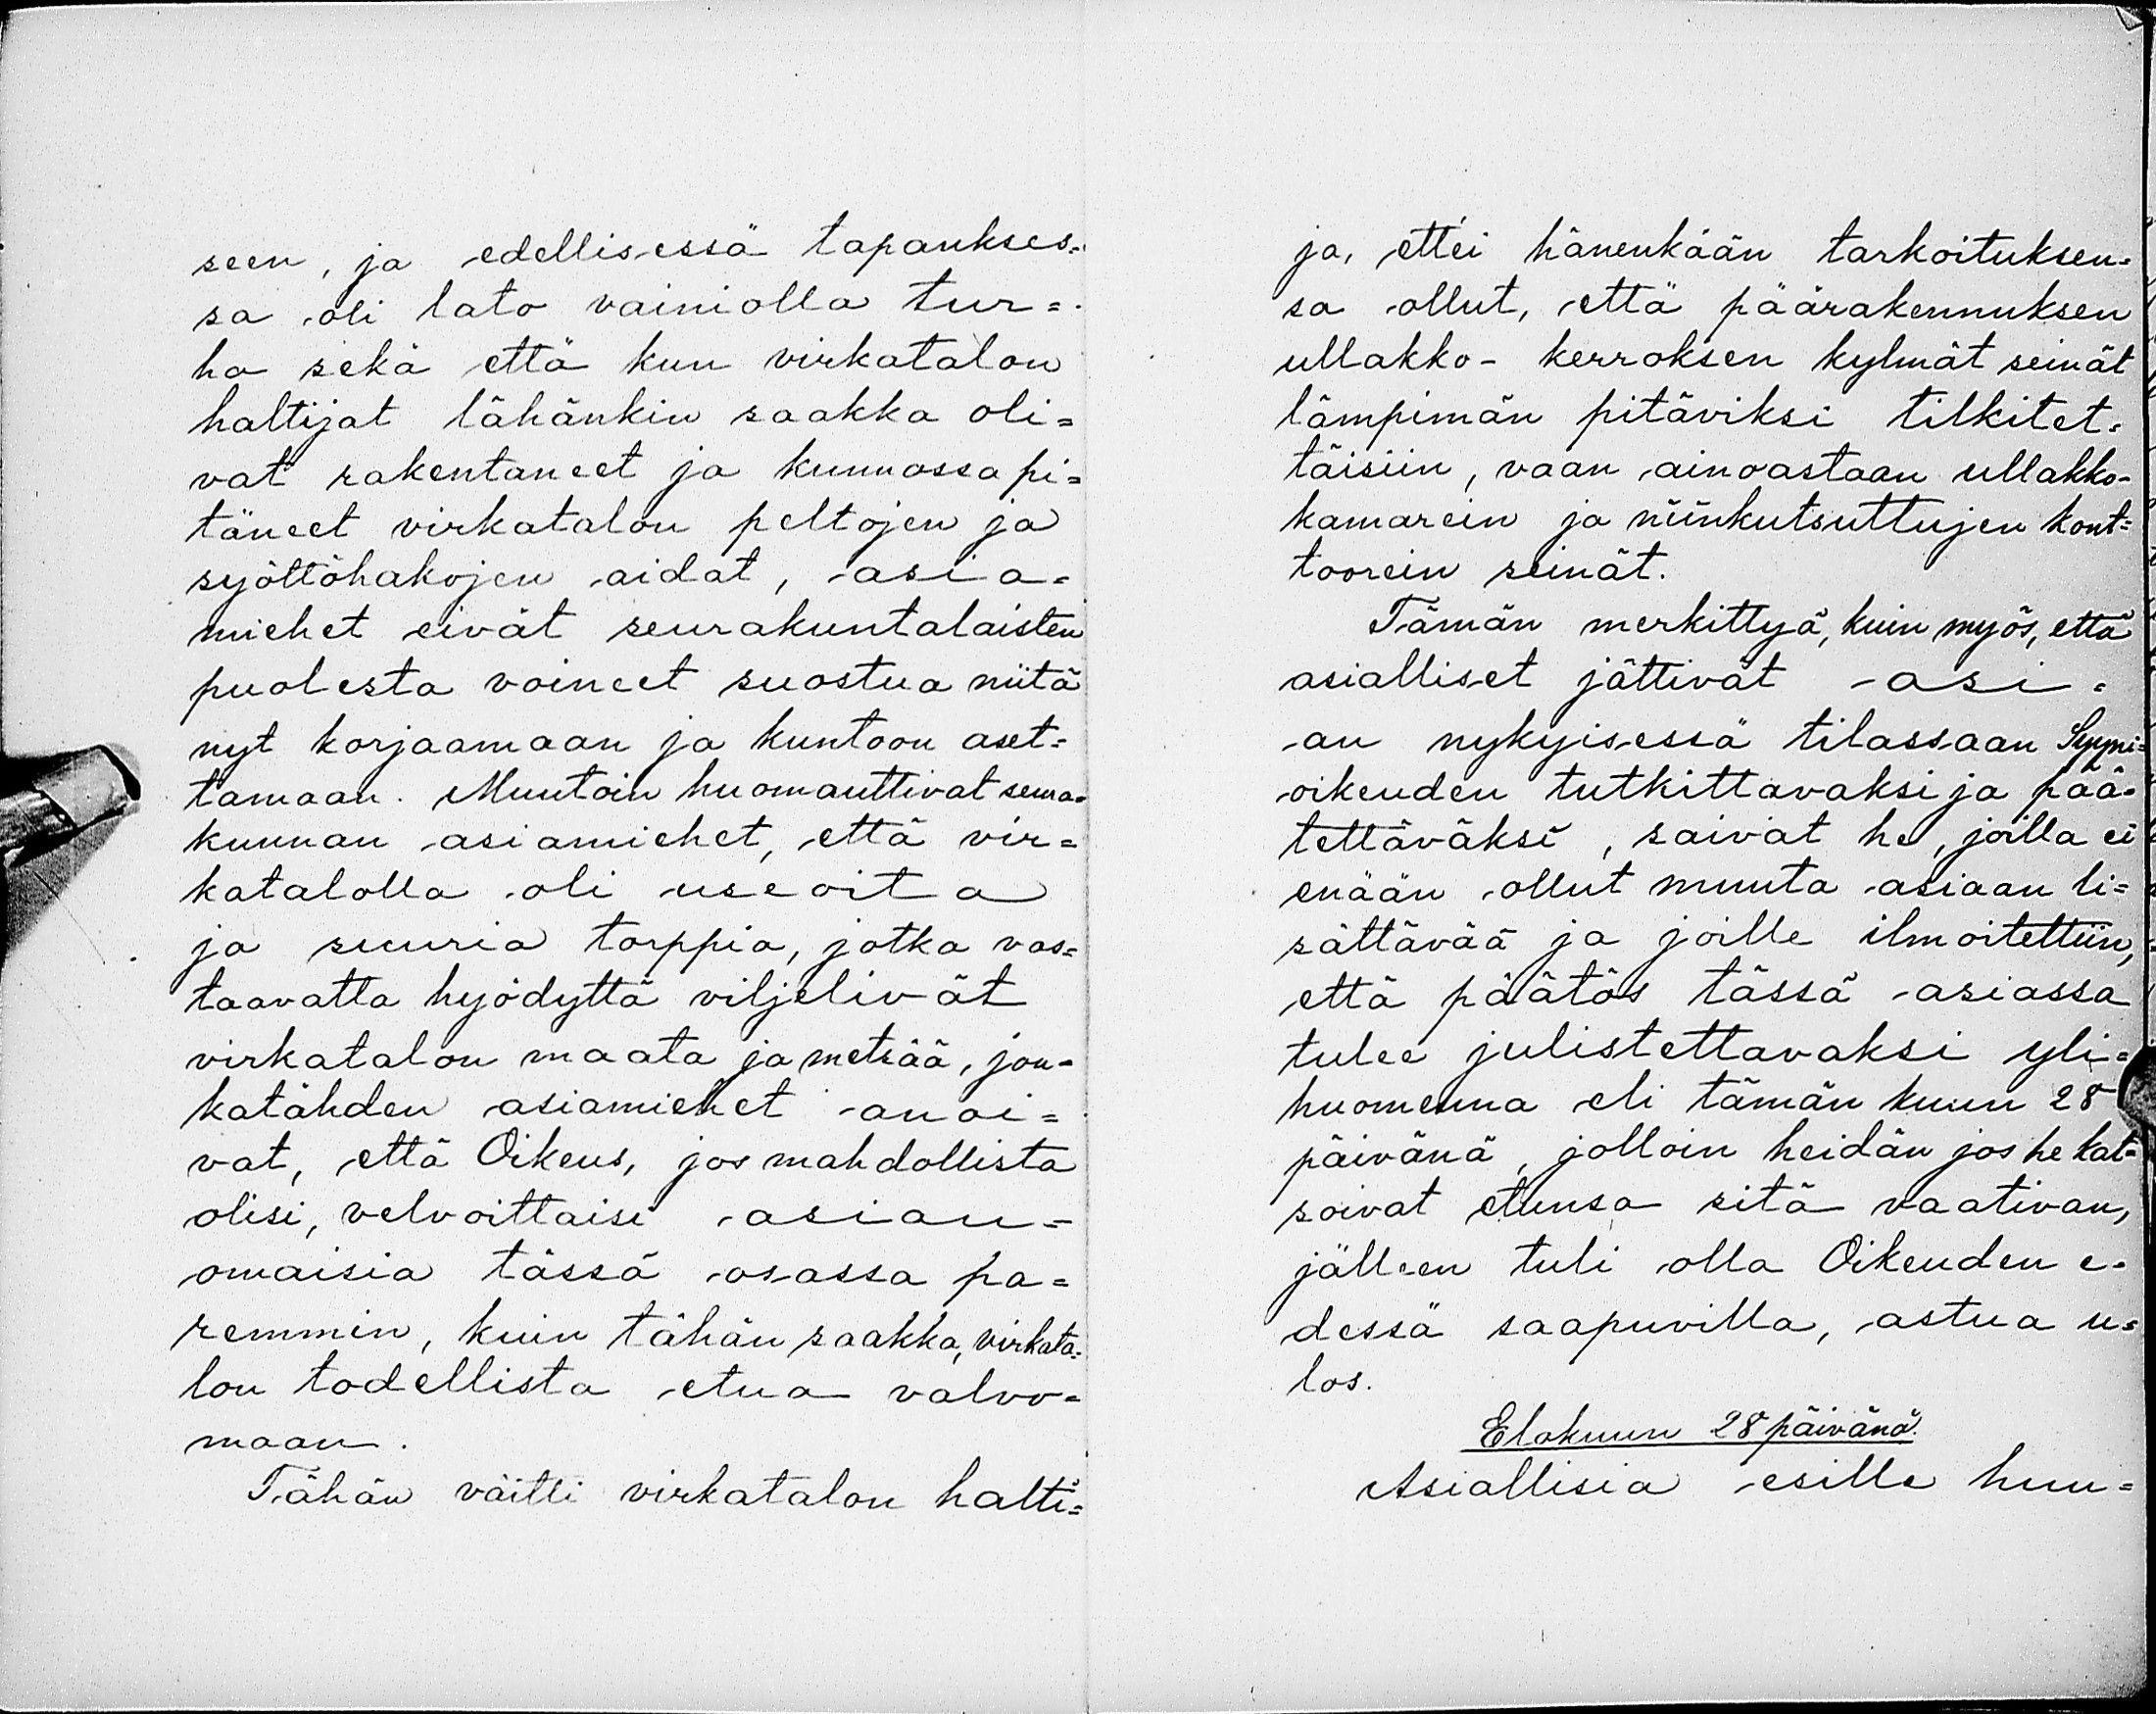 seen, ja edellisessä tapaukses=
sa oli lato vainiolla tur=
ha sekä että kun virkatalon
haltijat tähänkin saakka oli=
vat rakentaneet ja kunnossa pi=
täneet virkatalon peltojen ja
syöttöhakojen aidat, asia=
miehet eivät seurakuntalaisten
puolesta voineet suostua niitä
nyt korjaamaan ja kuntoon aset=
tamaan. Muutoin huomauttivat seura=
kunnan asiamiehet, että vir=
katalolla oli useoita
ja suuria torppia, jotka vas=
taavatta hyödyttä viljelivät
virkatalon maata ja metsää, jon=
katähden asiamiehet anoi=
vat, että Oikeus, jos mahdollista
olisi, velvoittaisi asian=
omaisia tässä osassa pa=
remmin, kuin tähän saakka, virkata=
lon todellista etua valvo=
maan.
Tähän väitti virkatalon halti=
ja, ettei hänenkään tarkoituksen=
sa ollut, että päärakennuksen
ullakko- kerroksen kylmät seinät
lämpimän pitäviksi tilkitet=
täisiin, vaan ainoastaan ullakko-
kamarein ja niinkutsuttujen kont=
toorein seinät.
Tämän merkittyä, kuin myös, että
asialliset jättivät asi=
an nykyisessä tilassaan Syyni=
oikeuden tutkittavaksi ja pää=
tettäväksi, saivat he, joilla ei
enään ollut muuta asiaan li=
sättävää ja joille ilmoitettiin,
että päätös tässä asiassa
tulee julistettavaksi yli=
huomenna eli tämän kuun 28
päivänä, jolloin heidän jos he kat=
soivat etunsa sitä vaativan,
jälleen tuli olla Oikeuden e=
dessä saapuvilla, astua u=
los.
Elokuun 28 päivänä.
Asiallisia esille huu=